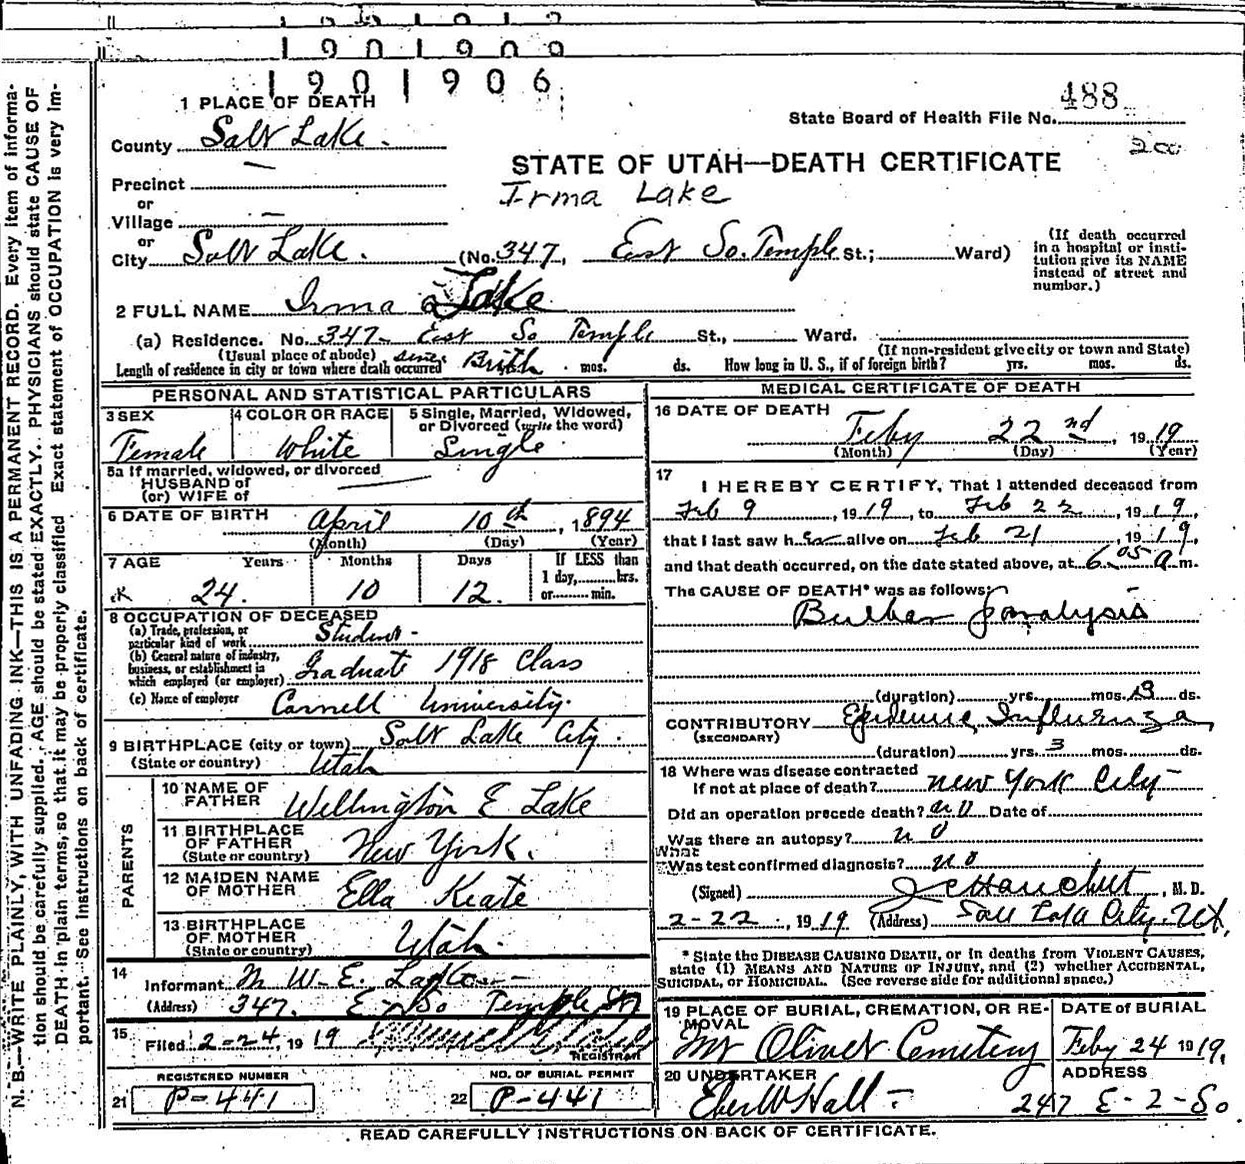 1901909
1901906
488
State Board of Health File No.
200
1 PLACE OF DEATH
County Salt Lake.
STATE OF UTAH—DEATH CERTIFICATE
Irma Lake
Precinct
or
Village
or
City Salt Lake. (No. 347, East So. Temple St.; Ward)
(If death occurred in a hospital or institution give its NAME instead of street and number.)
2 FULL NAME Irma Lake
(a) Residence. No. 347- East So Temple St., Ward.
(Usual place of abode) (If non-resident give city or town and State)
Length of residence in city or town where death occurred since Brith mos. ds. How long in U. S., if of foreign birth? yrs. mos. ds.
PERSONAL AND STATISTICAL PARTICULARS
3 SEX Female
4 COLOR OR RACE White
5 Single, Married, Widowed, or Divorced (write the word) Single
5a If married, widowed, or divorced
HUSBAND of
(or) WIFE of
6 DATE OF BIRTH April 10th, 1894
(Month) (Day) (Year)
7 AGE Years Months Days If LESS than
1 day, hrs.
or min.
24. 10 12.
8 OCCUPATION OF DECEASED
(a) Trade, profession, or particular kind of work Student-
(b) General nature of industry, business, or establishment in which employed (or employer) Graduate 1918 Class
(c) Name of employer Carnell University.
9 BIRTHPLACE (city or town) Salt Lake City.
(State or country) Utah
PARENTS
10 NAME OF FATHER Wellington E Lake
11 BIRTHPLACE OF FATHER (State or country) New York.
12 MAIDEN NAME OF MOTHER Ella Keate
13 BIRTHPLACE OF MOTHER (State or country) Utah.
14 Informant M W. E. Lake
(Address) 347. E So Temple St
15 Filed 2-24, 1919
REGISTRAR
REGISTERED NUMBER NO. OF BURIAL PERMIT
21 P-441 22 P-441
MEDICAL CERTIFICATE OF DEATH
16 DATE OF DEATH Feby 22nd, 1919
(Month) (Day) (Year)
17 I HEREBY CERTIFY, That I attended deceased from
Feb 9, 1919, to Feb 22, 1919,
that I last saw her alive on Feb 21, 1919,
and that death occurred, on the date stated above, at 6.05 a m.
The CAUSE OF DEATH* was as follows:
Bulbar paralysis
(duration) yrs. mos. 13 ds.
CONTRIBUTORY Epidemic Influenza
(SECONDARY)
(duration) yrs. 3 mos. ds.
18 Where was disease contracted
If not at place of death? New York City-
Did an operation precede death? no Date of
Was there an autopsy? no
What
Was test confirmed diagnosis? no
(Signed) , M. D.
2-22, 1919 (Address) Salt Lake City. Ut.
* State the DISEASE CAUSING DEATH, or in deaths from VIOLENT CAUSES, state (1) MEANS AND NATURE OF INJURY, and (2) whether ACCIDENTAL, SUICIDAL, or HOMICIDAL. (See reverse side for additional space.)
19 PLACE OF BURIAL, CREMATION, OR REMOVAL Mt Olivet Cemetery
DATE OF BURIAL Feby 24 1919.
20 UNDERTAKER Eber W Hall-
ADDRESS 247 E-2-So
READ CAREFULLY INSTRUCTIONS ON BACK OF CERTIFICATE.
N. B.—WRITE PLAINLY, WITH UNFADING INK—THIS IS A PERMANENT RECORD. Every item of information should be carefully supplied. AGE should be stated EXACTLY. PHYSICIANS should state CAUSE OF DEATH in plain terms, so that it may be properly classified. Exact statement of OCCUPATION is very important. See instructions on back of certificate.